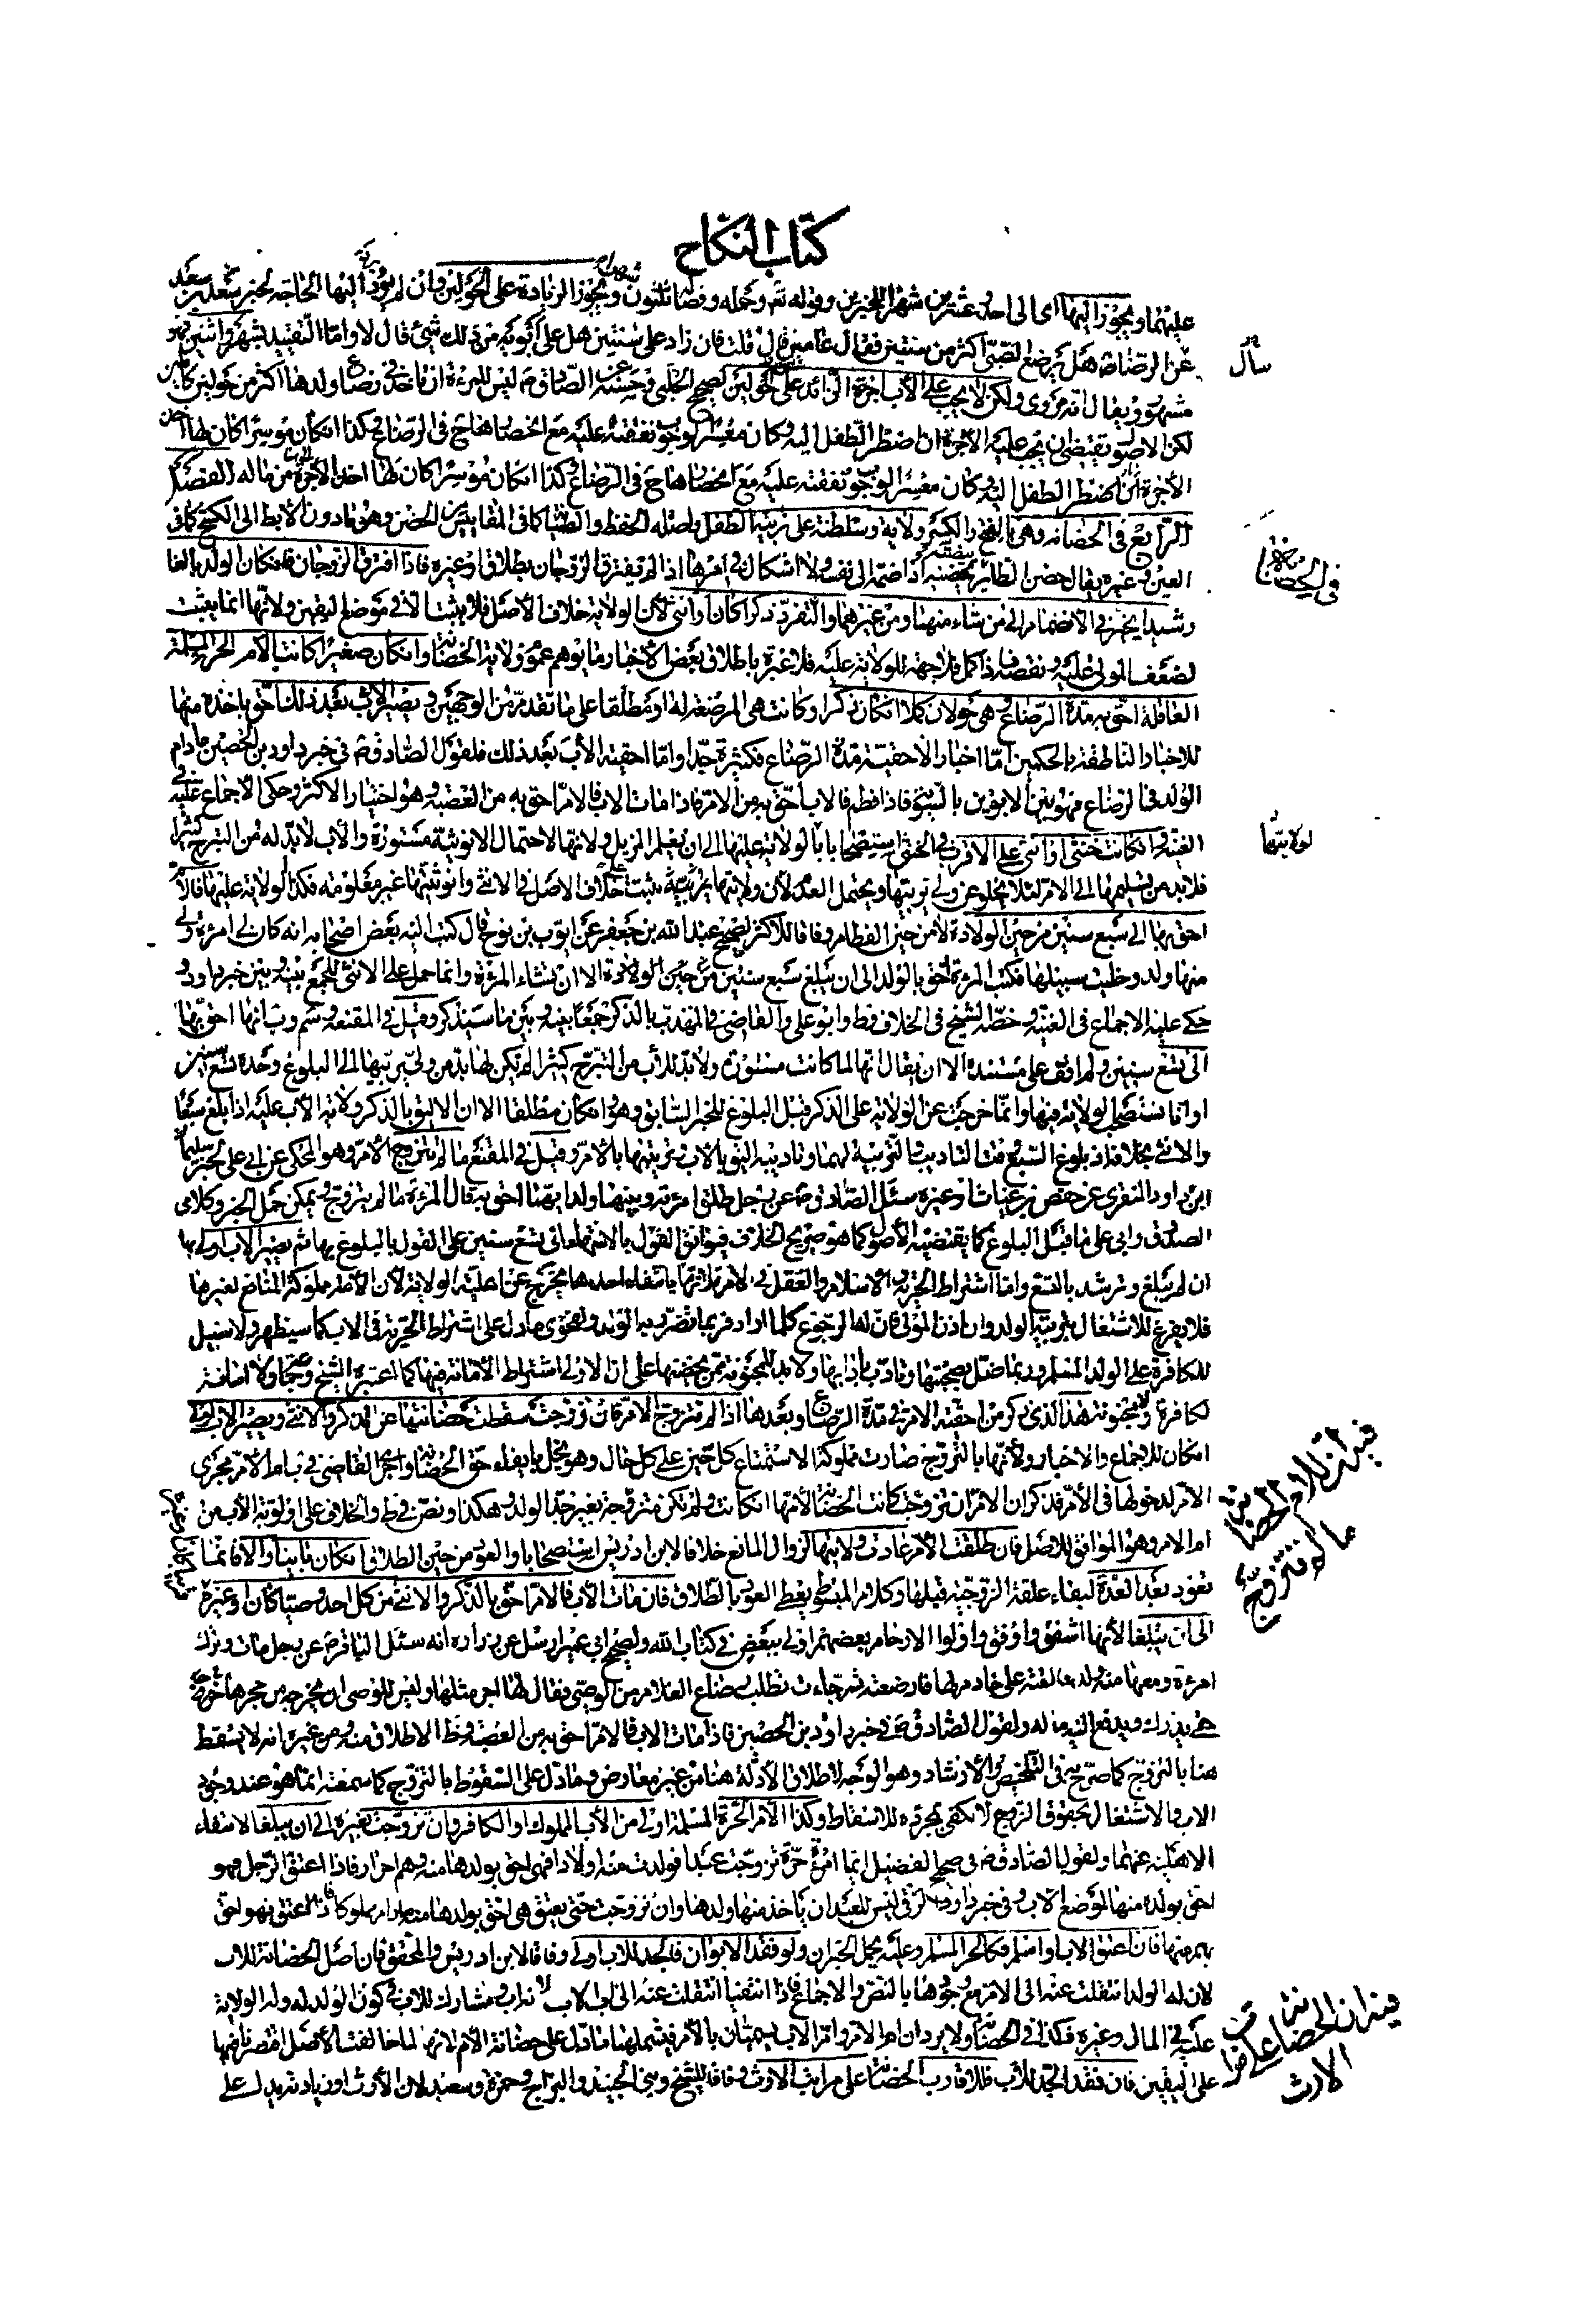 كتاب النكاح
عليهما ويجوز اليهما اى الى احد وعشرين شهرا للخبرين وقوله تعالى وحمله وفصاله ثلثون شهرا ويجوز الزيادة على الحولين وان لم يؤد اليها الحاجة لخبر سعد بن سعد
سأل
عن الرضا ع هل يرضع الصبى اكثر من سنتين فقال عامين قال قلت فان زاد على سنتين هل على ابويه من ذلك شئ قال لا واما التقييد بشهر واثنين فهو
مشهور ويقال انه مروى ولكن لا يجب على الاب اجرة الزائد على حولين لصحيح الحلبى وحسنه عن الصادق ع ليس للمرءة ان تاخذ فى رضاع ولدها اكثر من حولين كاملين
لكن الاصول تقتضى ان يجب عليه الاجرة ان اضطر الطفل اليه وكان معسرا لوجوب نفقته عليه مع انحصارها ح فى الرضاع وكذا ان كان موسرا كان لها اخذ
الاجرة ان اضطر الطفل اليه وكان معسرا لوجوب نفقته عليه مع انحصارها ح فى الرضاع وكذا ان كان موسرا كان لها اخذ الاجرة من ماله الفصل
الرابع فى الحضانة وهى بالفتح والكسر ولاية وسلطنة على تربية الطفل واصله الحفظ والصيانة كما فى المقاييس من الحضن وهو ما دون الابط الى الكشح كما فى
فى الحضانة
العين وغيره يقال حضن الطائر بيضه اذا ضمه الى نفسه ولا اشكال فى امرها اذا لم يفترق الزوجان بطلاق او غيره فاذا افترق الزوجان فان كان الولد بالغا
رشيدا يخير فى الانضمام الى من شاء منهما ومن غيرهما والتفرد ذكرا كان او انثى لان الولاية خلاف الاصل فلا يثبت الا فى موضع اليقين ولانها انما يثبت
لضعف المولى عليه ونقصه فاذا كمل فلا جهة للولاية عليه فلا عبرة باطلاق بعض الاخبار وما يوهم عموم ولاية الحضانة وان كان صغيرا كانت الام الحرة المسلمة
العاقلة احق به مدة الرضاع وهى حولان كملا ان كان ذكرا وكانت هى المرضعة له او مطلقا على ما تقدم من الوجهين ويصير الاب بعد ذلك احق باخذه منها
للاخبار الناطقة بالحكمين اما اخبار الاحقية مدة الرضاع فكثيرة جدا واما احقية الاب بعد ذلك فلقول الصادق ع فى خبر داود بن الحصين مادام
الولد فى الرضاع فهو بين الابوين بالسوية فاذا فطم فالاب احق به من الام فاذا مات الاب فالام احق به من العصبة وهو اختيار الاكثر وحكى الاجماع عليه فى
لولايتها
الغنية وان كانت خنثى او انثى على الاقرب فى الخنثى استصحابا لولايته عليها الى ان يعلم المزيل ولانها لاحتمال الانوثية مستورة والاب لا بد له من التبرج كثيرا
فلا بد من تسليمها الى الام لئلا يخلو عن ولى تربيتها ويحتمل العدم لان ولايتها تربية يثبت على خلاف الاصل فى الانثى وانوثيتها غير معلومة فكذا الولاية عليها فالام
احق بها الى سبع سنين من حين الولادة لا من حين الفطام وفاقا للاكثر لصحيح عبد الله بن جعفر عن ايوب بن نوح قال كتب اليه بعض اصحابه انه كان لى امرءة ولى
منها ولد وخليت سبيلها فكتب المرءة احق بالولد الى ان يبلغ سبع سنين من حين الولادة الا ان تشاء المرءة وانما حمل على الانثى للجمع بينه وبين خبر داود و
حكى عليه الاجماع فى الغنية وخصه الشيخ فى الخلاف وط وابو على والقاضى فى المهذب بالذكر جمعا بينه وبين ما سيذكر وقيل فى المقنعة وسم وب انها احق بها
الى تسع سنين ولم اقف على مستنده الا ان يقال انها لما كانت مستورة ولا بد للاب من التبرج كثيرا لم يكن لها بد من ولى يربيها الى البلوغ وحده تسع سنين
او انا نستصحب لولاية فيها وانما خرجت عن الولاية على الذكر قبل البلوغ للخبر السابق وهو وان كان مطلقا الا ان الاليق بالذكر ولاية الاب عليه اذا بلغ سبعا
والانثى بخلافه اذ بلوغ السبع وقت التاديب والتربية لهما وتاديبه اليق بالاب وتربيتها بالام وقيل فى المقنع ما لم تتزوج الام وهو المحكى عن ابى على لخبر سليمان
ابن داود المنقرى عن حفص بن غياث او غيره سئل الصادق ع عن رجل طلق امرءته وبينهما ولد ايهما احق به قال المرءة ما لم يتزوج ويمكن حمل الخبر وكلامى
الصدوق وابى على ما قبل البلوغ كما يقتضيه الاصول كما هو صريح الخلاف فيوافق القول بالانتهاء الى تسع سنين على القول بالبلوغ بها ثم يصير الاب اولى بها
ان لم يبلغ وترشد بالتسع واما اشتراط الحرية والاسلام والعقل فى الام فلانها بانتفاء احدها يخرج عن اهلية الولاية لان الامة مملوكة المنافع لغيرها
فلا يفرغ للاشتغال بتربية الولد وان اذن المولى فان له الرجوع كلما اراد فربما تضرر به الولد ولفحوى ما دل على اشتراط الحرية فى الاب كما سيظهر ولا سبيل
للكافرة على الولد المسلم وربما ضل بصحبتها وتادب بآدابها ولا بد للمجنونة ممن يحضنها على ان الاولى اشتراط الامانة فيها كما اعتبره الشيخ وجماعة ولا امانة
لكافرة ولا مجنونة هذا الذى ذكر من احقية الام فى مدة الرضاع وبعدها اذا لم تتزوج الام فان تزوجت سقطت حضانتها عن الذكر والانثى ويصير الاب اولى
فى ان للام الحضانة ما لم تتزوج
ان كان للاجماع والاخبار ولانها بالتزويج صارت مملوكة الاستمتاع كل حين على كل حال وهو يخل بايفاء حق الحضانة واجرى القاضى فى ام الام مجرى
الام لدخولها فى الام فذكر ان الام ان تزوجت كانت الحضانة لامها ان كانت ولم تكن متزوجة بغير جد الولد وهكذا ونص فى ط والخلاف على اولوية الاب من
ام الام وهو الموافق للاصل فان طلقت الام عادت ولايتها لزوال المانع خلافا لابن ادريس استصحابا والعود من حين الطلاق ان كان باينا والا فانما
تعود بعد العدة لبقاء علقة الزوجية قبلها وكلام المبسوط يعطى العود بالطلاق فان مات الاب فالام احق بالذكر والانثى من كل احد وصيا كان او غيره
الى ان يبلغا لانها اشفق وارفق واولوا الارحام بعضهم اولى ببعض فى كتاب الله ولصحيح ابى عمير ارسل عن زرارة انه سئل الباقر ع عن رجل مات وترك
امرءة ومعها منه ولد فالقته على خادم لها فارضعته ثم جاءت تطلب رضاع الغلام من الوصى فقال لها اجر مثلها وليس للوصى ان يخرجه من حجرها
حتى يدرك ويدفع اليه ماله ولقول الصادق ع فى خبر داود بن الحصين فاذا مات الاب فالام احق به من العصبة وظ الاطلاق منه ومن غيره انه لا يسقط
هنا بالتزوج كما صرح به فى التلخيص والارشاد وهو الوجه لاطلاق الادلة هنا من غير معارض وما دل على السقوط بالتزوج كما سمعته انما هو عند وجود
الاب والاشتغال بحقوق الزوج لا تكفى بمجرده للاسقاط وكذا الام الحرة المسلمة اولى من الاب المملوك او الكافر وان تزوجت بغيره الى ان يبلغا لانتفاء
الاهلية عنهما ولقول الصادق ع فى صحيح الفضيل ايما امرءة حرة تزوجت عبدا فولدت منه اولادا فهى احق بولدها منه وهم احرار فاذا اعتق الرجل فهو
احق بولده منها لموضع الاب وفى خبر داود الرقى ليس للعبد ان ياخذ منها ولدها وان تزوجت حتى يعتق هى احق بولدها منه مادام مملوكا فاذا اعتق فهو احق
بهم منها فان اعتق الاب او اسلم فكالحر المسلم وعليه يحمل الخبران ولو فقد الابوان فالجد للاب اولى وفاقا لابن ادريس والمحقق فان اصل الحضانة للاب
لان له الولد انتقلت عنه الى الام مع وجودها بالنص والاجماع فاذا انتفيا انتقلت عنه الى اب الاب لانه اب ومشارك للاب فى كون الولد له وله الولاية
عليه فى المال وغيره فكذا فى الحضانة ولا يرد ان ام الام وام الاب يسميان بالام فيشملهما ما دل على حضانة الام لانها لما خالفت الاصل اقتصر فيها
فى ان الحضانة على مراتب الارث
على اليقين فان فقد الجد للاب فللاقارب الحضانة على مراتب الارث وفاقا للشيخ وبنى الجنيد والبراج وحمزة وسعيد لان الارث او زيادته يدل على